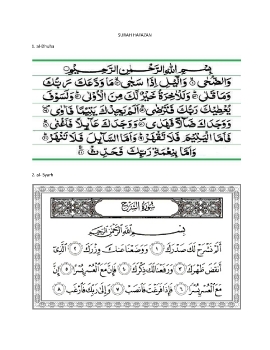 SURAH HAFAZAN
1. al-Dhuha
بِسْمِ اللَّهِ الرَّحْمَٰنِ الرَّحِيمِ
وَالضُّحَىٰ ۝ وَاللَّيْلِ إِذَا سَجَىٰ ۝ مَا وَدَّعَكَ رَبُّكَ
وَمَا قَلَىٰ ۝ وَلَلْآخِرَةُ خَيْرٌ لَّكَ مِنَ الْأُولَىٰ ۝ وَلَسَوْفَ
يُعْطِيكَ رَبُّكَ فَتَرْضَىٰ ۝ أَلَمْ يَجِدْكَ يَتِيمًا فَآوَىٰ ۝
وَوَجَدَكَ ضَالًّا فَهَدَىٰ ۝ وَوَجَدَكَ عَائِلًا فَأَغْنَىٰ ۝
فَأَمَّا الْيَتِيمَ فَلَا تَقْهَرْ ۝ وَأَمَّا السَّائِلَ فَلَا تَنْهَرْ ۝
وَأَمَّا بِنِعْمَةِ رَبِّكَ فَحَدِّثْ ۝
2. al- Syarh
سُورَةُ الشَّرْحِ
بِسْمِ اللَّهِ الرَّحْمَٰنِ الرَّحِيمِ
أَلَمْ نَشْرَحْ لَكَ صَدْرَكَ ١ وَوَضَعْنَا عَنكَ وِزْرَكَ ٢ الَّذِي
أَنقَضَ ظَهْرَكَ ٣ وَرَفَعْنَا لَكَ ذِكْرَكَ ٤ فَإِنَّ مَعَ الْعُسْرِ يُسْرًا ٥ إِنَّ
مَعَ الْعُسْرِ يُسْرًا ٦ فَإِذَا فَرَغْتَ فَانصَبْ ٧ وَإِلَىٰ رَبِّكَ فَارْغَب ٨